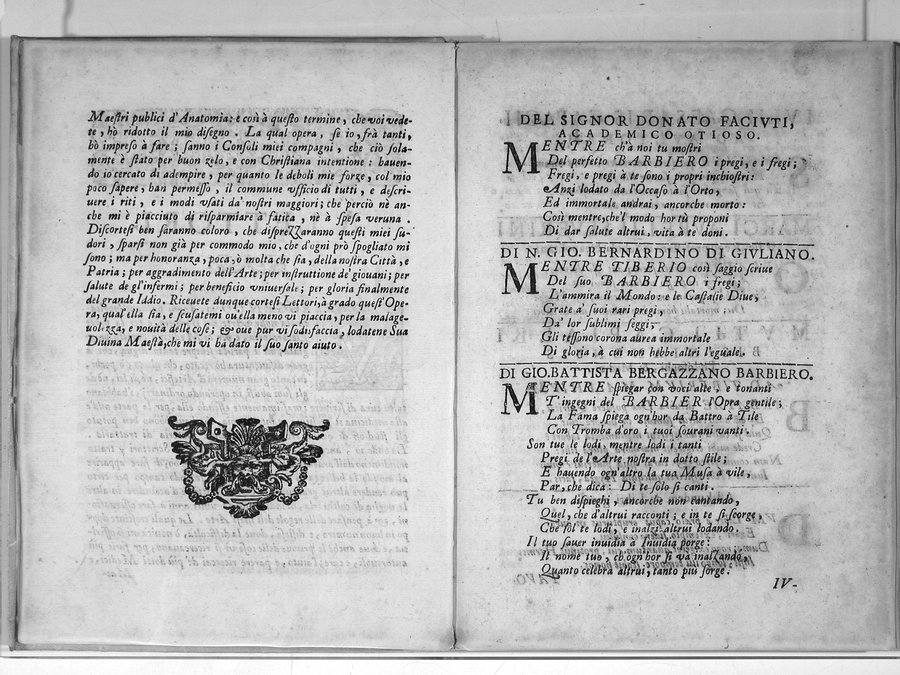 Maeſtri publici d'Anatomia: e così à queſto termine, che voi vede-
te, hò ridotto il mio diſegno. La qual opera, ſe io, frà tanti,
hò impreſo à fare; ſanno i Conſoli miei compagni, che ciò ſola-
mente è ſtato per buon zelo, e con Chriſtiana intentione: hauen-
do io cercato di adempire, per quanto le deboli mie forze, col mio
poco ſapere, han permeſſo, il commune vfficio di tutti, e deſcri-
uere i riti, e i modi vſati da' noſtri maggiori; che perciò nè an-
che mi è piacciuto di riſparmiare à fatica, nè à ſpeſa veruna.
Diſcorteſi ben ſaranno coloro, che diſprezzaranno queſti miei ſu-
dori, ſparſi non già per commodo mio, che d'ogni prò ſpogliato mi
ſono; ma per honoranza, poca, ò molta che ſia, della noſtra Città, e
Patria; per aggradimento dell'Arte; per inſtruttione de' giouani; per
ſalute de gl'infermi; per beneficio vniuerſale; per gloria finalmente
del grande Iddio. Riceuete dunque corteſi Lettori, à grado queſt'Ope-
ra, qual'ella ſia, e ſcuſatemi ou'ella meno vi piaccia, per la malage-
uolezza, e nouità delle coſe; & oue pur vi ſodisfaccia, lodatene Sua
Diuina Maeſtà, che mi vi ha dato il ſuo ſanto aiuto.
DEL SIGNOR DONATO FACIVTI,
ACADEMICO OTIOSO.
MENTRE ch'à noi tu moſtri
Del perfetto BARBIERO i pregi, e i fregi;
Fregi, e pregi à te ſono i propri inchioſtri:
Anzi lodato da l'Occaſo à l'Orto,
Ed immortale andrai, ancorche morto:
Così mentre, che'l modo hor tù proponi
Di dar ſalute altrui, vita à te doni.
DI N. GIO. BERNARDINO DI GIVLIANO.
MENTRE TIBERIO così ſaggio ſcriue
Del ſuo BARBIERO i fregi;
L'ammira il Mondo: e le Caſtalie Diue,
Grate a' ſuoi rari pregi,
Da' lor ſublimi ſeggi,
Gli teſſono corona aurea immortale
Di gloria, à cui non hebbe altri l'eguale.
DI GIO.BATTISTA BERGAZZANO BARBIERO.
MENTRE ſpiegar con voci alte, e ſonanti
T'ingegni del BARBIER l'Opra gentile;
La Fama ſpiega ogn'hor da Battro à Tile
Con Tromba d'oro i tuoi ſourani vanti.
Son tue le lodi, mentre lodi i tanti
Pregi de l'Arte noſtra in dotto ſtile;
E hauendo ogn'altro la tua Muſa à vile,
Par, che dica: Di te ſolo ſi canti.
Tu ben diſpieghi, ancorche non cantando,
Quel, che d'altrui racconti; e in te ſi ſcorge,
Che ſol te lodi, e inteſſi altrui lodando.
Il tuo ſauer inuidia à Inuidia porge:
Il nome tuo, ch'ogn'hor ſi va inalzando,
Quanto celebra altrui, tanto più ſorge.
IV-